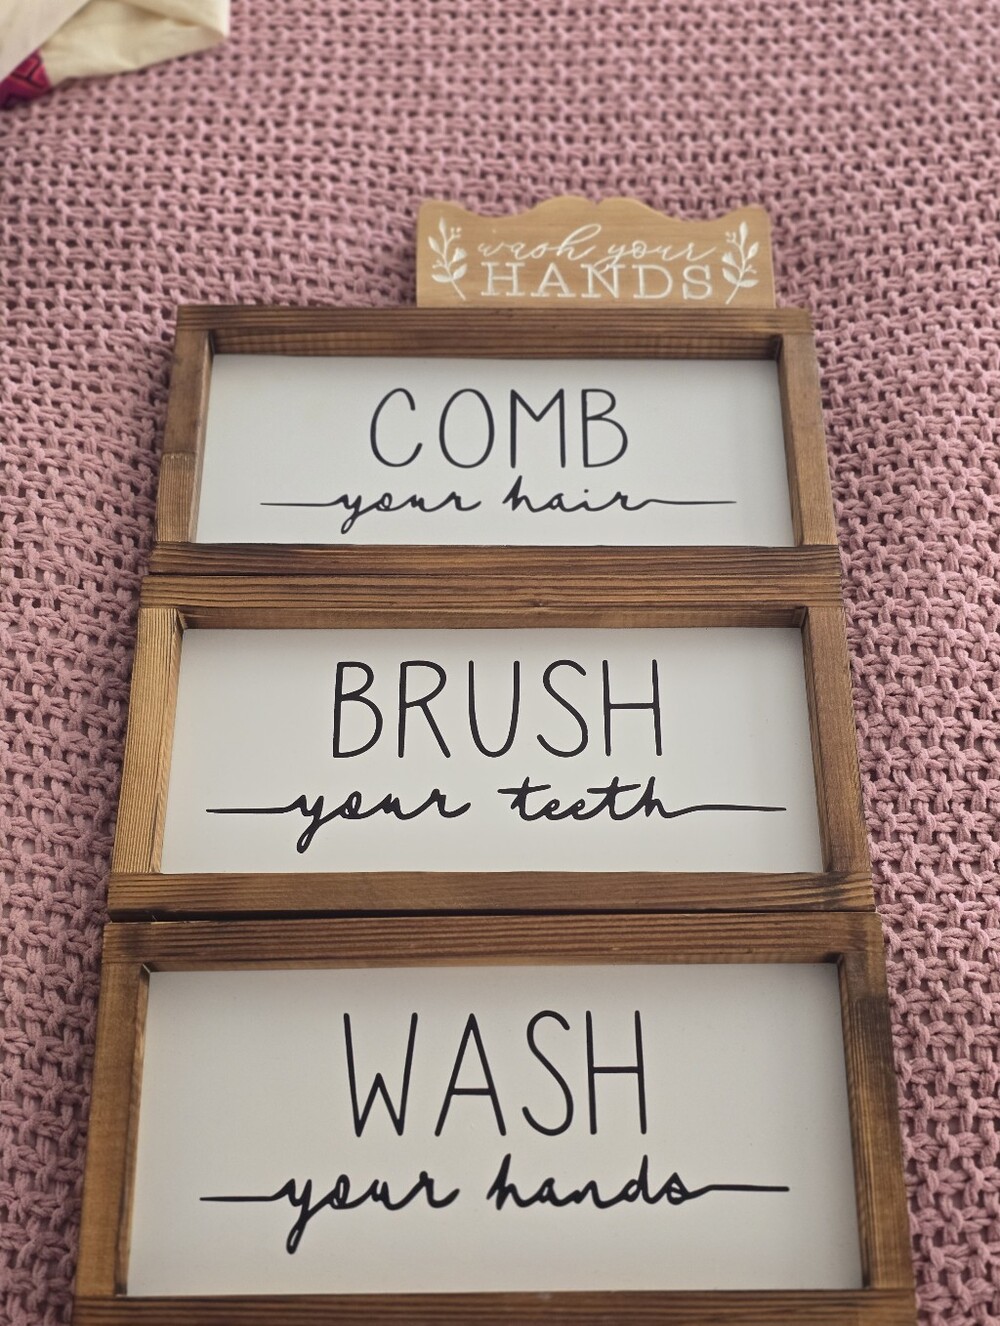 wash your
HANDS
COMB
your hair
BRUSH
your teeth
WASH
your hands